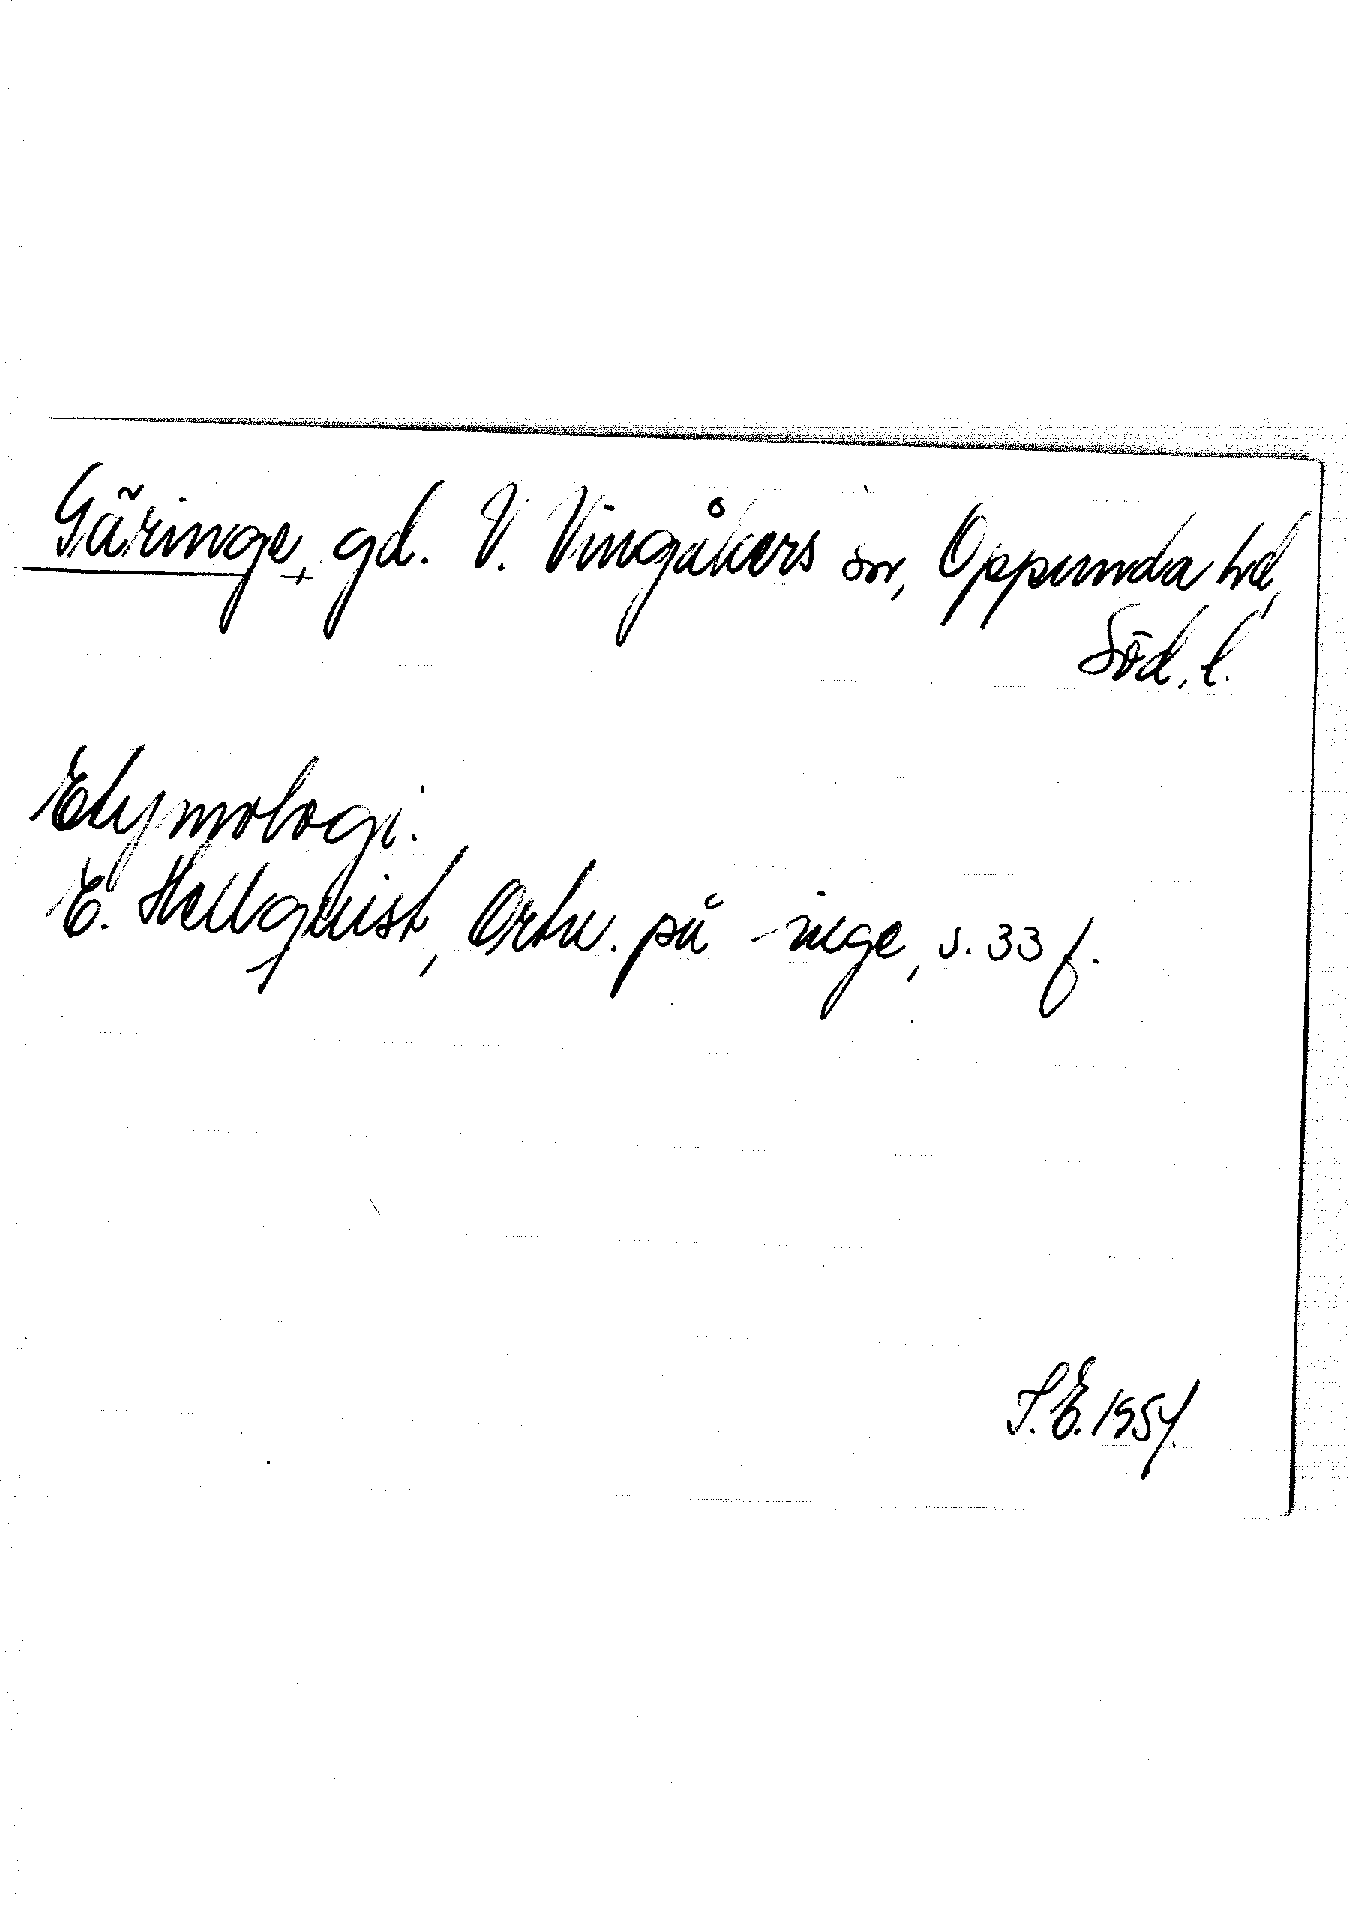 Gäringe, gd. V. Vingåkers sn, Oppunda hd,
Söd. l.
Etymologi.
E. Hellquist, Ortn. på -inge, s. 33 f.
S. E. 1954.